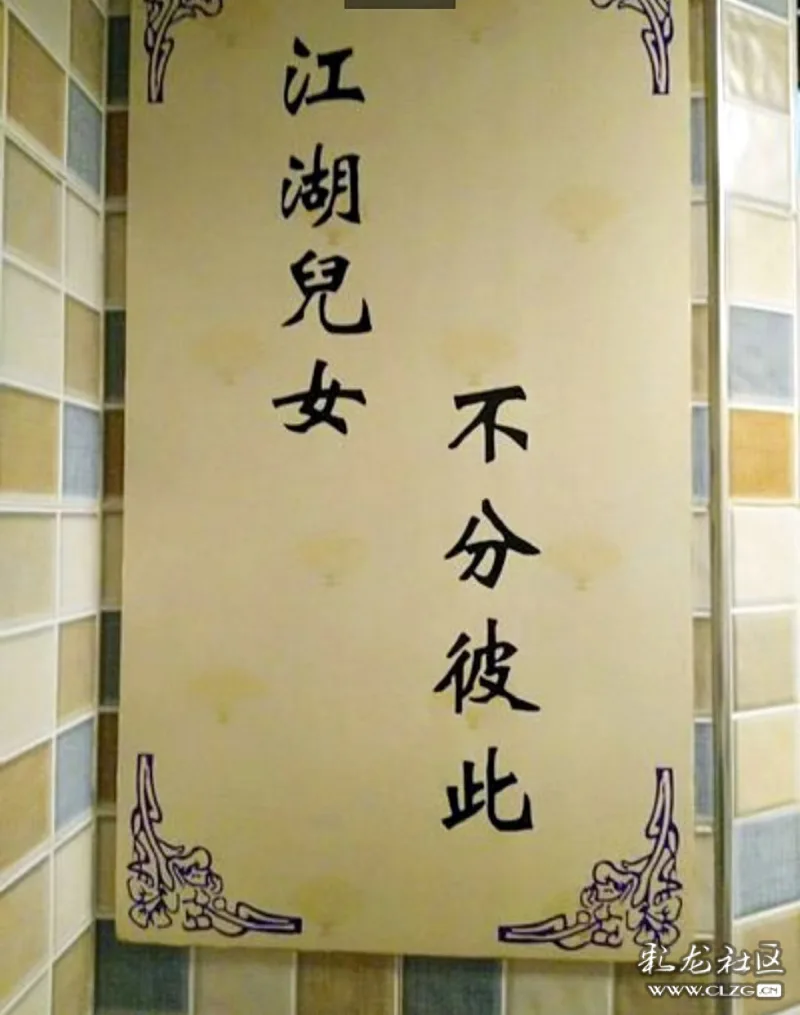 江湖兒女
不分彼此
彩龙社区
WWW.CLZG.CN